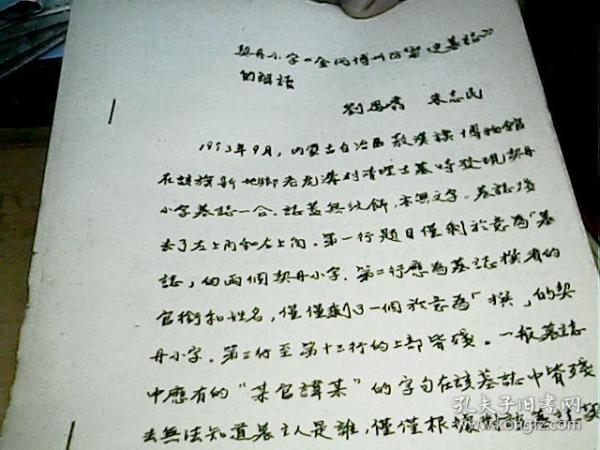 契丹小字《金代博州防禦使墓誌》
的解讀
劉鳳翥 朱志民
1993年9月，内蒙古自治区敖漢旗博物館
在該旗新地鄉老虎溝村清理古墓時發現契丹
小字墓誌一合。誌蓋無紋飾，亦無文字。墓誌殘
去了左上角和右上角。第一行題目僅剩於意為「墓
誌」的兩個契丹小字。第二行應為墓誌撰者的
官銜和姓名，僅僅剩了一個於意為「撰」的契
丹小字。第三行至第十三行的上部皆殘。一般墓誌
中應有的“某官諱某”的字句在該墓誌中皆殘
去無法知道墓主人是誰，僅僅根據
孔夫子旧书网